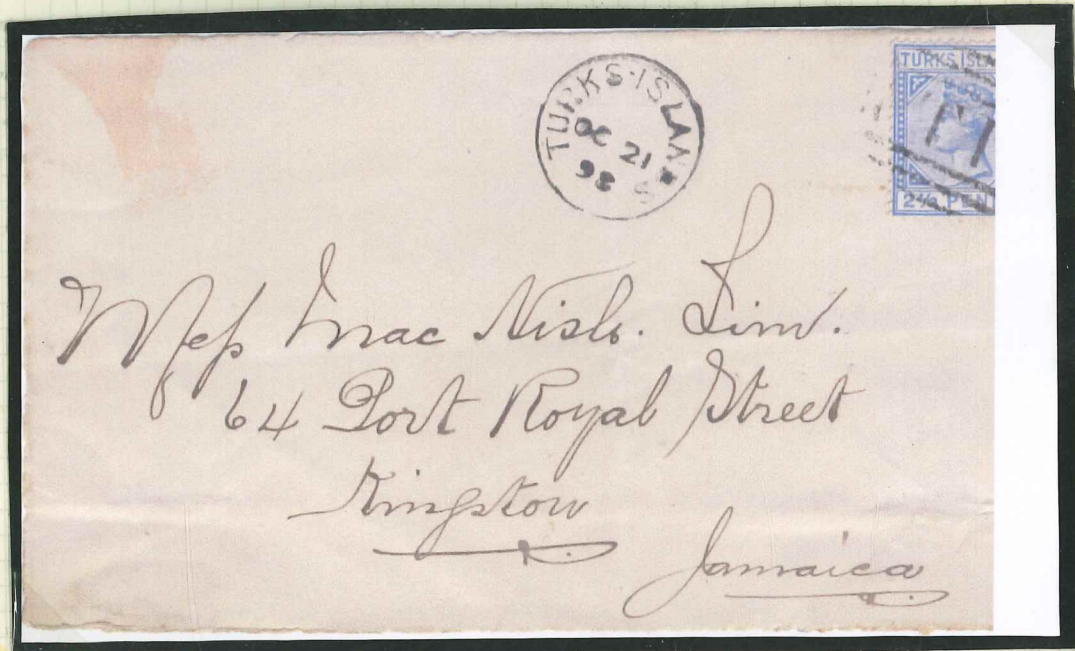 TURKS·ISLANDS
OC 21
98
TURKS ISLA
T
2½ PEN
Mess Mac Nish. Lim.
64 Port Royal Street
Kingston
Jamaica